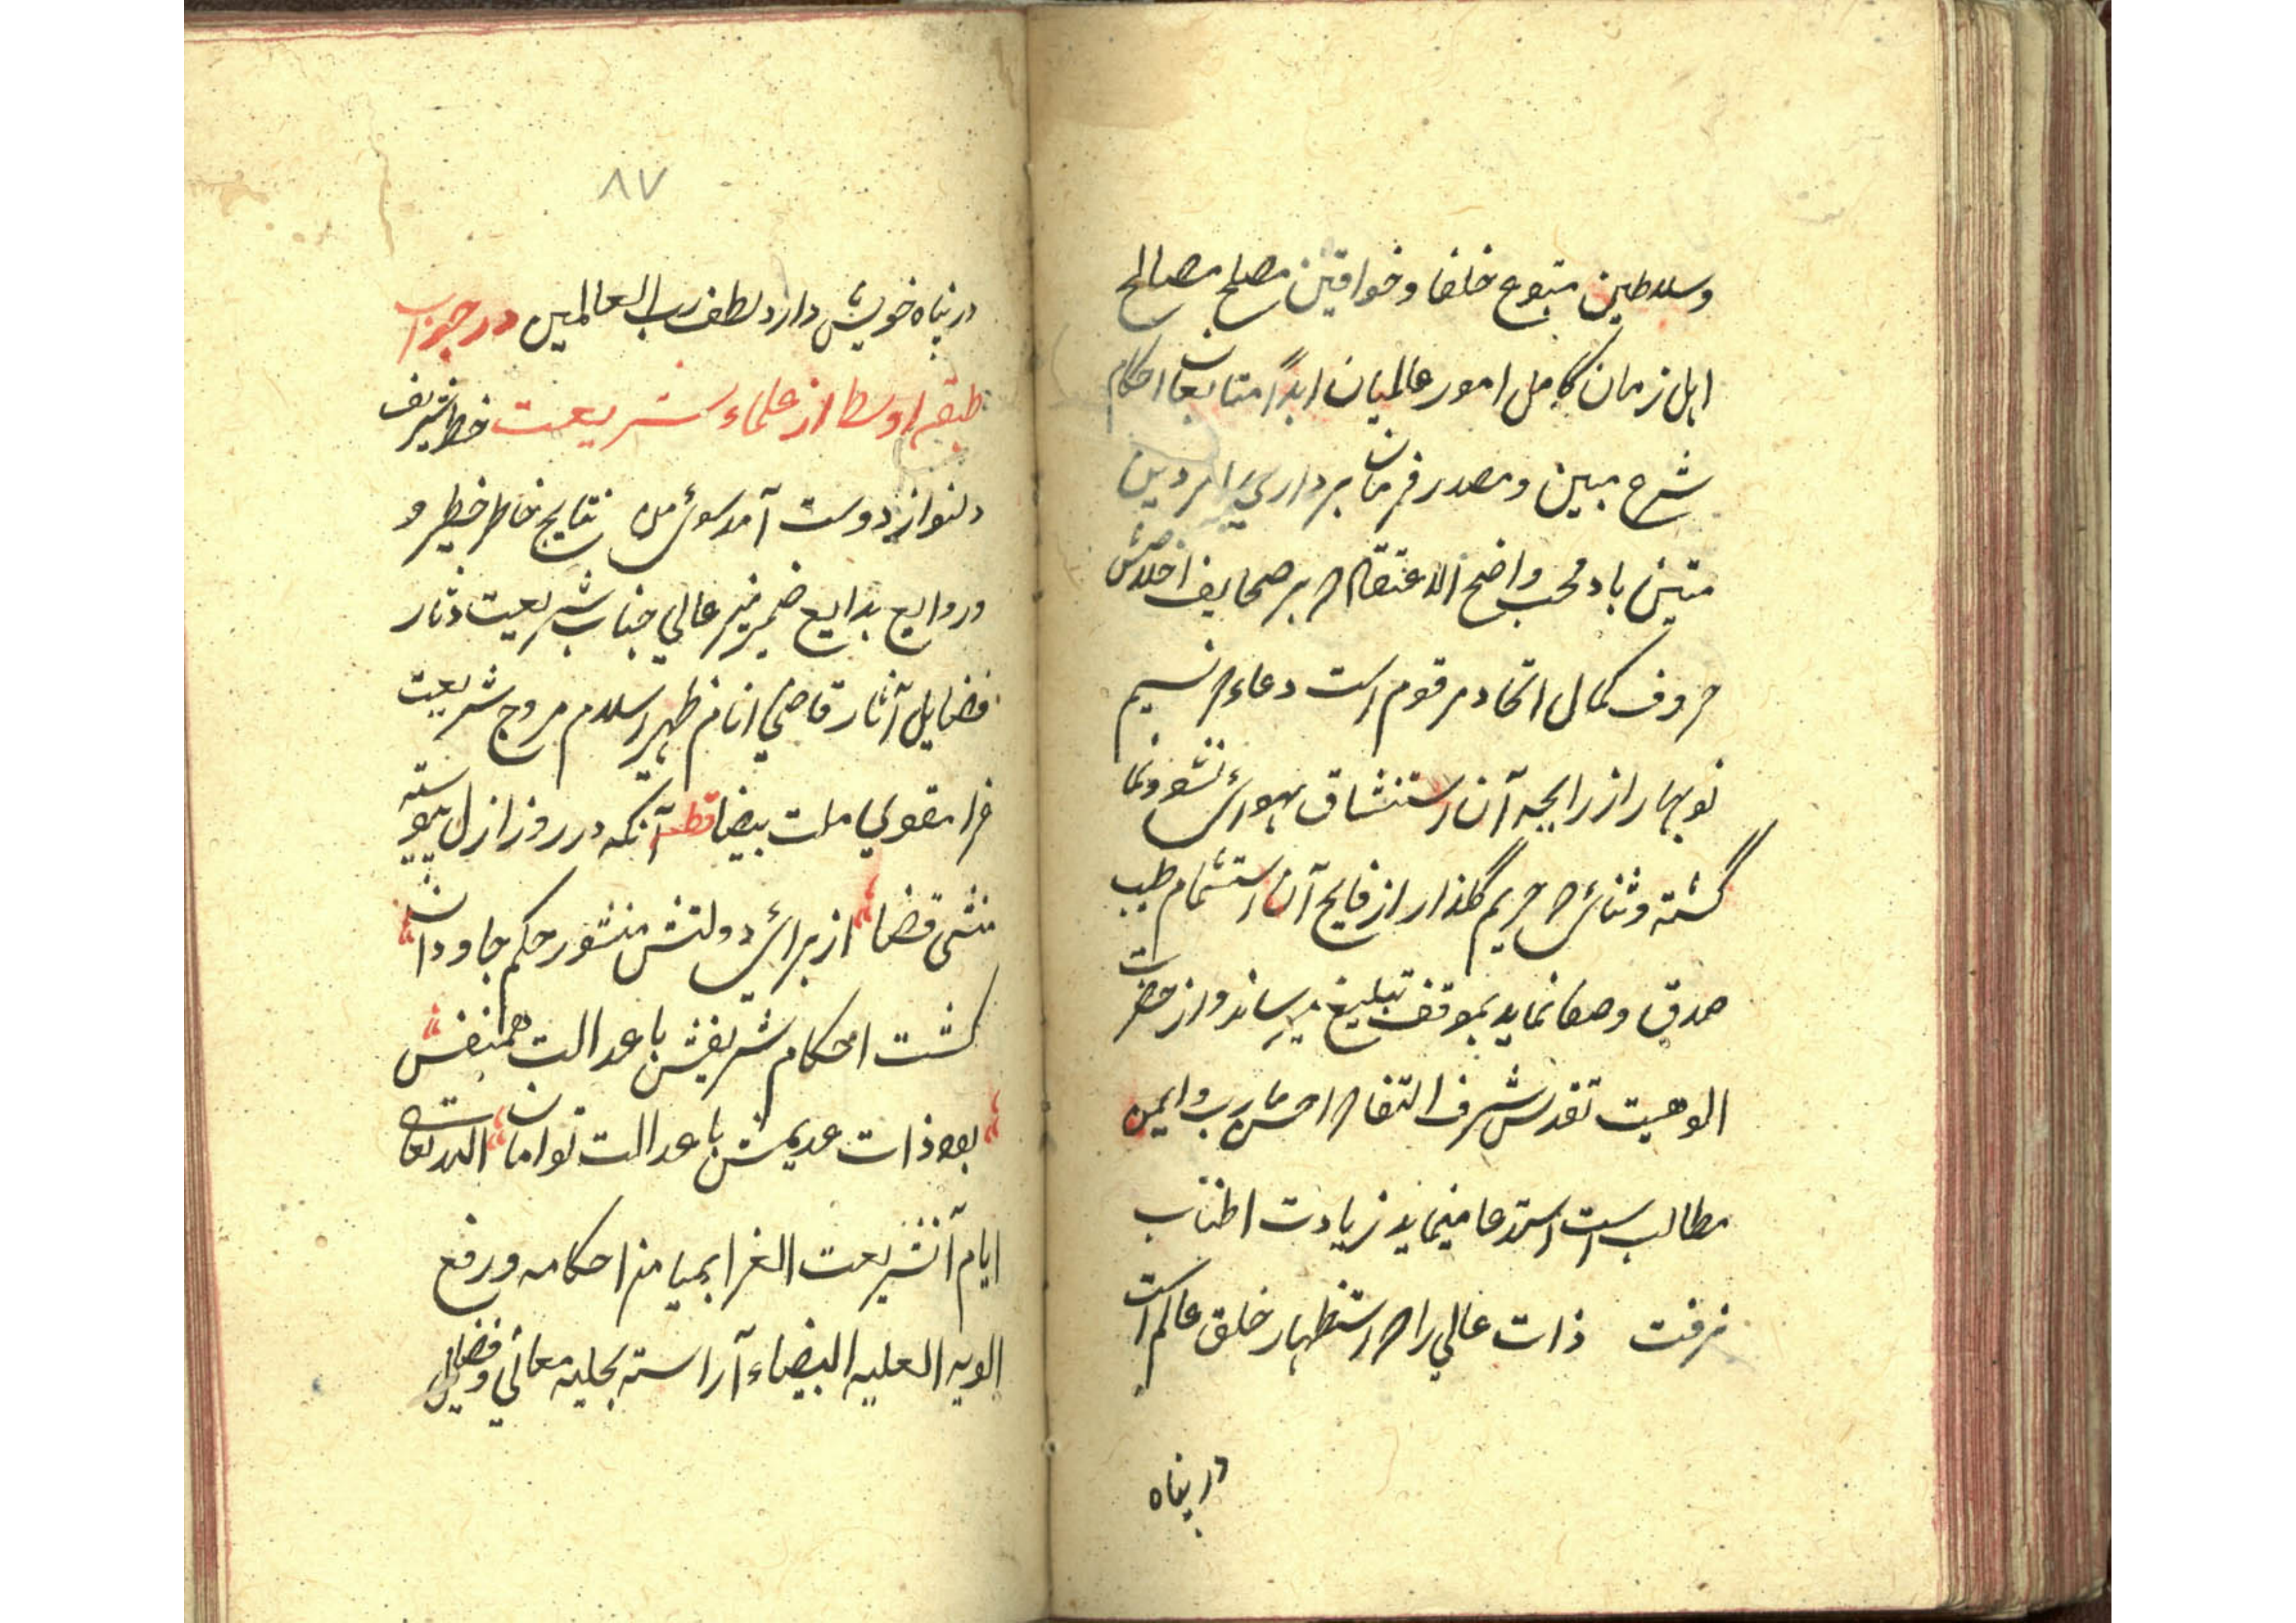 وسلاطین متبوع خلفا وخواقین مصلح مصالح
اهل زمان کامل امور عالمیان ابداً متابعان احکام
شرع مبین ومصدر فرمان برداری امر دین
متین باد محب واضح الاعتقاد که بر صحایف اخلاصش
حروف کمال اتحاد مرقوم است دعاء که نسیم
نوبهار از رایحه آن استنشاق هوای نشو ونما
گشته وثنائی که حریم گلذار از فایح آن استشمام طیب
صدق وصفا نماید بموقف تبلیغ میرساند واز حضرت
الوهیت تقدس شرف التقا که احسن مآرب وایمن
مطالب است استدعا مینماید زیادت اطناب
نرفت ذات عالی را که استظهار خلق عالم است
در پناه
۸۷
در پناه خویش دارد لطف رب العالمین در جواب
طبقه اوسط از علماء شریعت خط شریف
دلنواز دوست آمد سوی من نتایج خاطر خطیر و
وروایع بدایع ضمیر منیر عالی جناب شریعت دثار
فضایل آثار قاضی انام ظهیر اسلام مروج شریعت
غرا مقوی ملت بیضا قطعه آنکه در روز ازل پیوسته
منشی قضا از برای دولتش منشور حکم جاودان
گشت احکام شریفش با عدالت همنفس
بود ذات عدیمش با عدالت توامان الله تعالی
ایام آنشریعت الغرا بمیامن احکامه ورفع
الویه العلیه البیضاء آراسته بحلیه معانی وفضایل